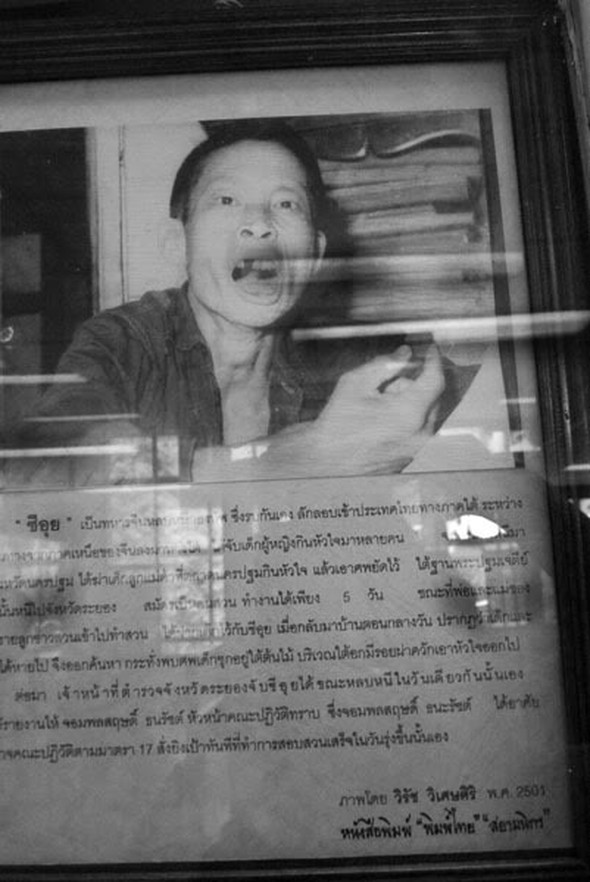 " ซีอุย " เป็นทหารจีน ซึ่งรบกันเอง ลักลอบเข้าประเทศไทยทางภาคใต้ ระหว่าง
ทางจากภาคเหนือของจีน จับเด็กผู้หญิงกินหัวใจมาหลายคน
นครปฐม ได้ฆ่าเด็ก นครปฐมกินหัวใจ แล้วเอาศพยัดไว้ ใต้ฐานพระปฐมเจดีย์
นั้นหนีไปจังหวัดระยอง ทำงานได้เพียง 5 วัน ขณะที่พ่อและแม่ของ
เข้าไปทำสวน ไว้กับซีอุย เมื่อกลับมาบ้านตอนกลางวัน ปรากฏว่าเด็ก
ได้หายไป จึงออกค้นหา กระทั่งพบศพเด็กซุกอยู่ใต้ต้นไม้ บริเวณใต้อกมีรอยผ่าควักเอาหัวใจออกไป
ต่อมา เจ้าหน้าที่ตำรวจจังหวัดระยองจับซีอุยได้ ขณะหลบหนีในวันเดียวกันนั้นเอง
รายงานให้ จอมพลสฤษดิ์ ธนรัชต์ หัวหน้าคณะปฏิวัติทราบ ซึ่งจอมพลสฤษดิ์ ธนะรัชต์ ได้อาศัย
คณะปฏิวัติตามมาตรา 17 สั่งยิงเป้าทันทีที่ทำการสอบสวนเสร็จในวันรุ่งขึ้นนั้นเอง
ภาพโดย วิรัช วิเศษศิริ พ.ศ. 2501
หนังสือพิมพ์ "พิมพ์ไทย" "สยามนิกร"